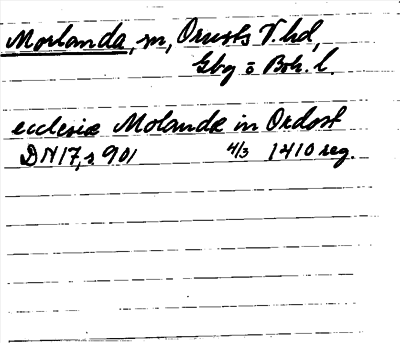 Morlanda, sn, Orusts V. hd,
Gbg o Boh. l.
ecclesiæ Molandæ in Ordost
DN 17, s 901 4/3 1410 reg.